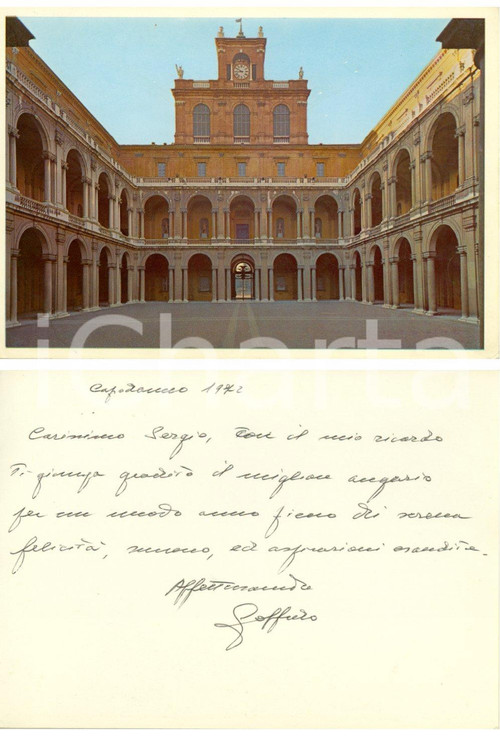 iCharta
Capodanno 1972
Carissimo Sergio, Con il mio ricordo
Ti giunga gradito il migliore augurio
per un nuovo anno pieno di serena
felicità, sereno, ed aspirazioni esaudite.
Affettuosamente
Goffredo